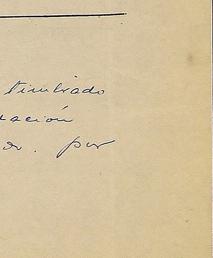 timbrado
ación
or. por